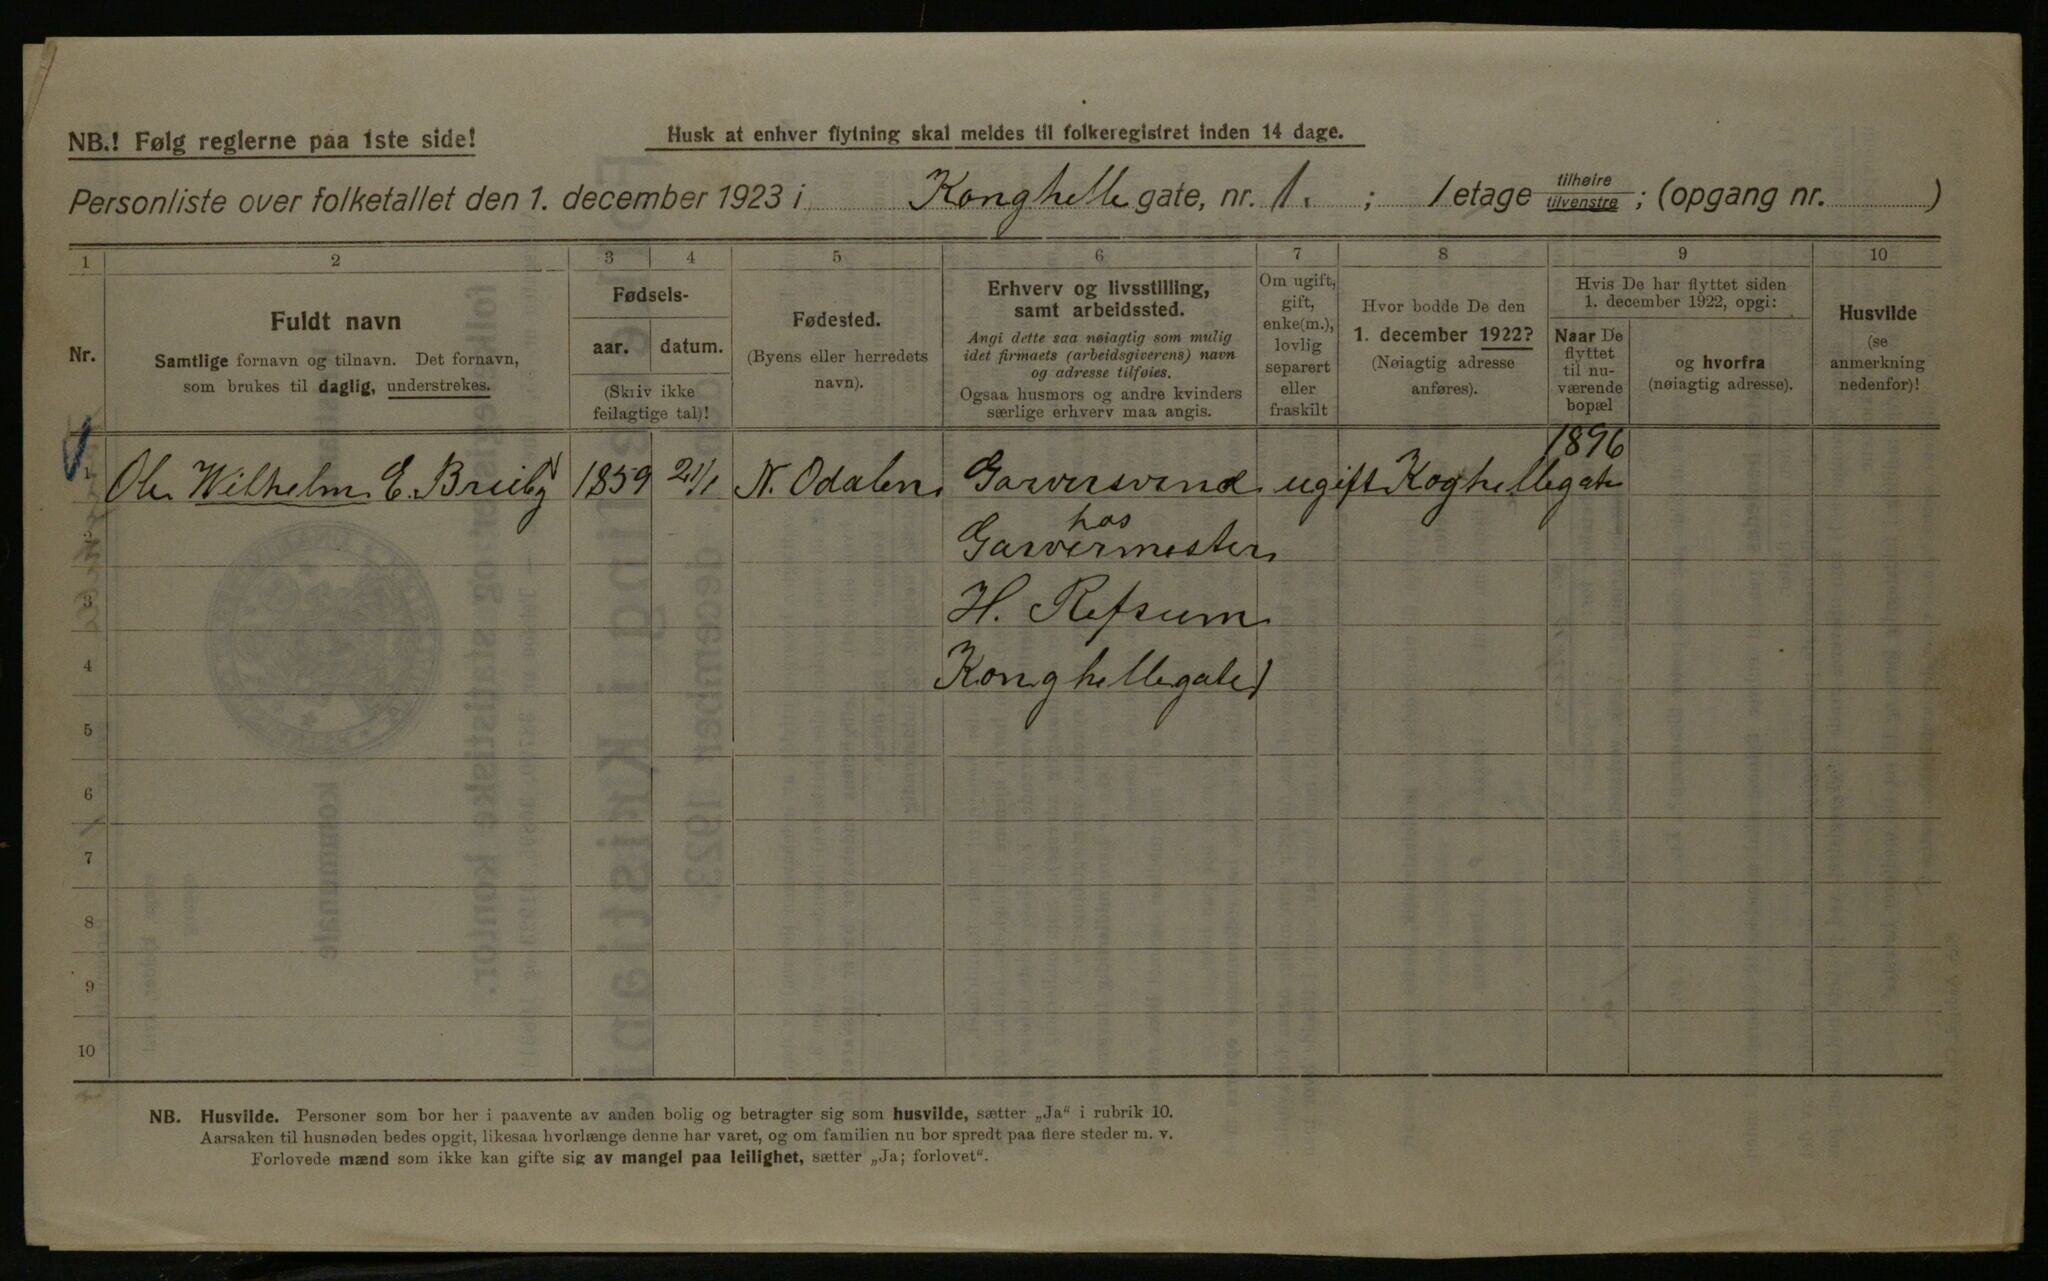 NB.! Følg reglerne paa 1ste side!
Husk at enhver flytning skal meldes til folkeregistret inden 14 dage.
Personliste over folketallet den 1. december 1923 i Konghelle gate, nr. 1. ; 1 etage tilhøire tilvenstre ; (opgang nr. )
1 2 3 4 5 6 7 8 9 10
Nr.
Fuldt navn
Samtlige fornavn og tilnavn. Det fornavn,
som brukes til daglig, understrekes.
Fødsels-
aar. datum.
(Skriv ikke
feilagtige tal)!
Fødested.
(Byens eller herredets
navn).
Erhverv og livsstilling,
samt arbeidssted.
Angi dette saa nøiagtig som mulig
idet firmaets (arbeidsgiverens) navn
og adresse tilføies.
Ogsaa husmors og andre kvinders
særlige erhverv maa angis.
Om ugift,
gift,
enke(m.),
lovlig
separert
eller
fraskilt
Hvor bodde De den
1. december 1922?
(Nøiagtig adresse
anføres).
Hvis De har flyttet siden
1. december 1922, opgi:
Naar De
flyttet
til nu-
værende
bopæl
og hvorfra
(nøiagtig adresse).
Husvilde
(se
anmerkning
nedenfor)!
1896
1 Ole Wilhelm E. 1859 21/1 N. Odalen Garversvend ugift Koghellegate
hos
2 Garvermester
3 H. Refsum
4 Konghellegate 1
5
6
7
8
9
10
NB. Husvilde. Personer som bor her i paavente av anden bolig og betragter sig som husvilde, sætter „Ja“ i rubrik 10.
Aarsaken til husnøden bedes opgit, likesaa hvorlænge denne har varet, og om familien nu bor spredt paa flere steder m. v.
Forlovede mænd som ikke kan gifte sig av mangel paa leilighet, sætter „Ja; forlovet“.